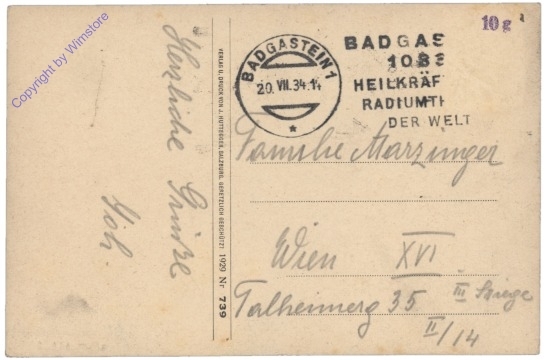 Copyright by Wimstore
10 g
BADGASTEIN 1
20. VII. 34. 14
*
BADGAS
1083
HEILKRÄF
RADIUMTH
DER WELT
Herzliche Grüße
Joh.
VERLAG U. DRUCK VON J. HUTTEGGER, SALZBURG. GESETZLICH GESCHÜTZT 1929 Nr. 739
Familie Marzinger
Wien XVI
Talheimerg 35 III Stiege
II/14